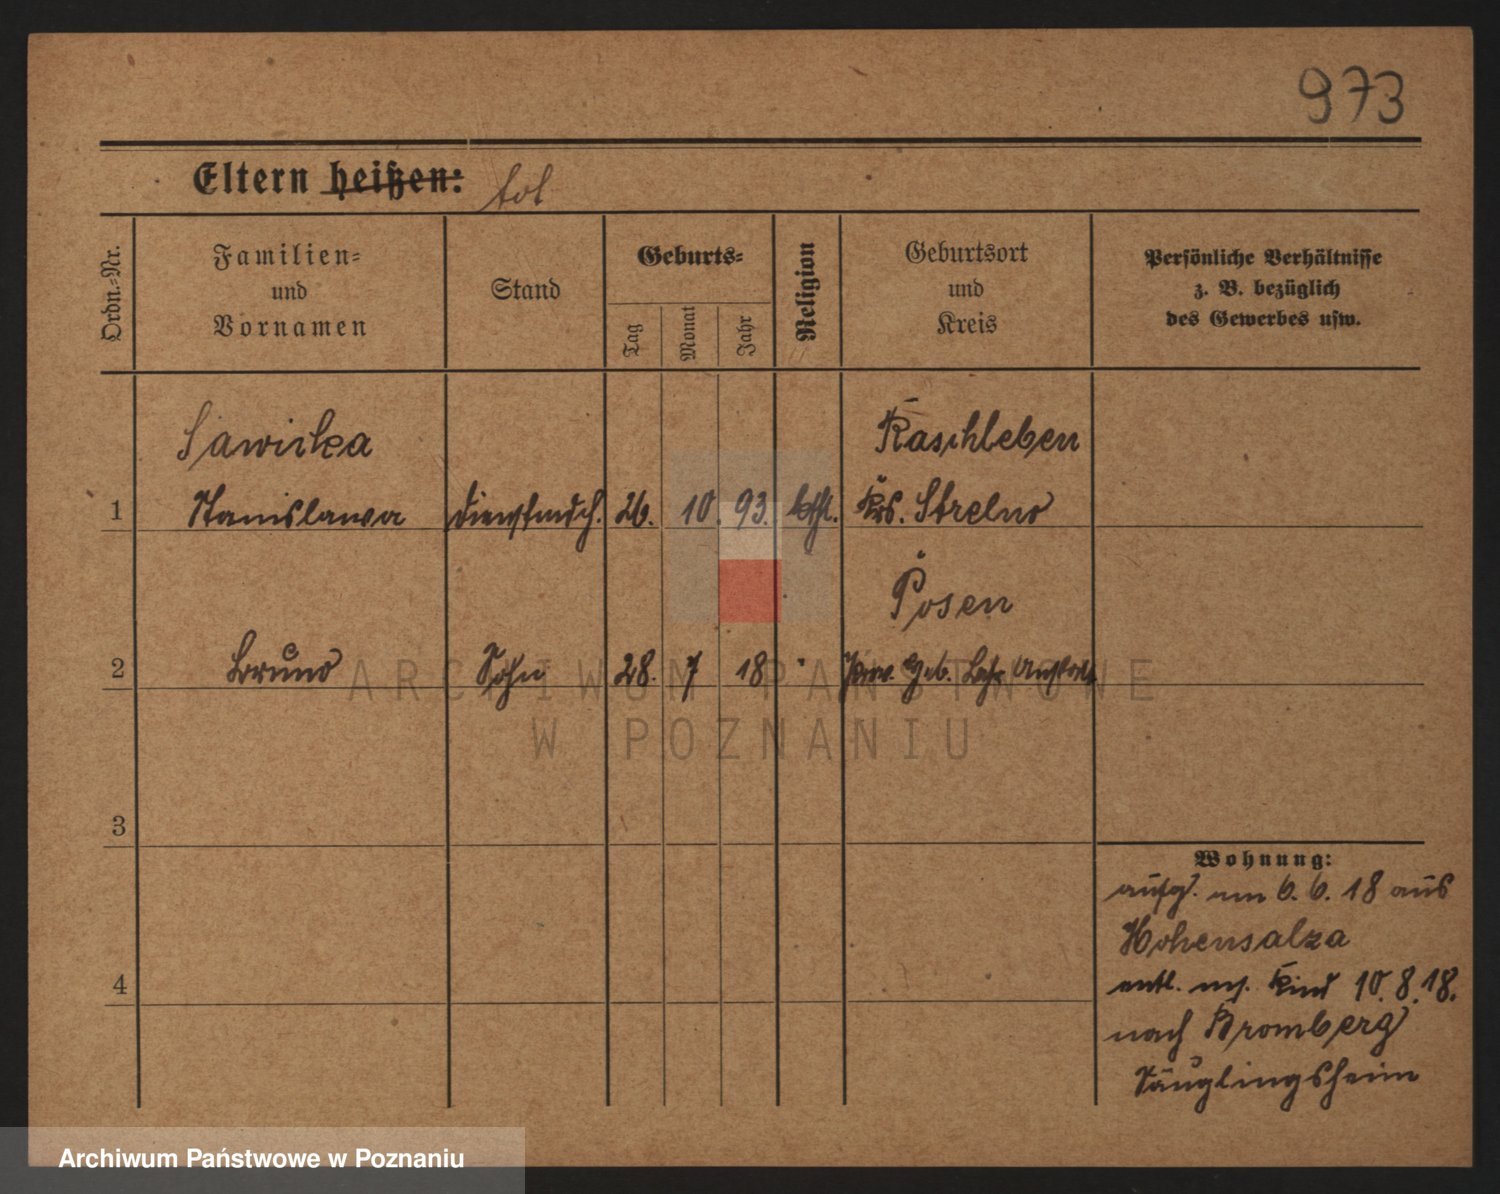 973
Eltern heißen: tot
Ordn.-Nr.
Familien-
und
Vornamen
Stand
Geburts-
Tag
Monat
Jahr
Religion
Geburtsort
und
Kreis
Persönliche Verhältnisse
z. B. bezüglich
des Gewerbes usw.
Sawicka
Raschleben
1 Stanislawa Dienstmdch. 26. 10. 93. kthl. Krs. Strelno
Posen
2 Bruno Sohn 28. 7 18 Prov. Heb. Lehr Anstalt
3
4
Wohnung:
aufg. am 6. 6. 18 aus
Hohensalza
entl. m. Kind 10. 8. 18.
nach Bromberg
Säuglingsheim
ARCHIWUM PAŃSTWOWE
W POZNANIU
Archiwum Państwowe w Poznaniu